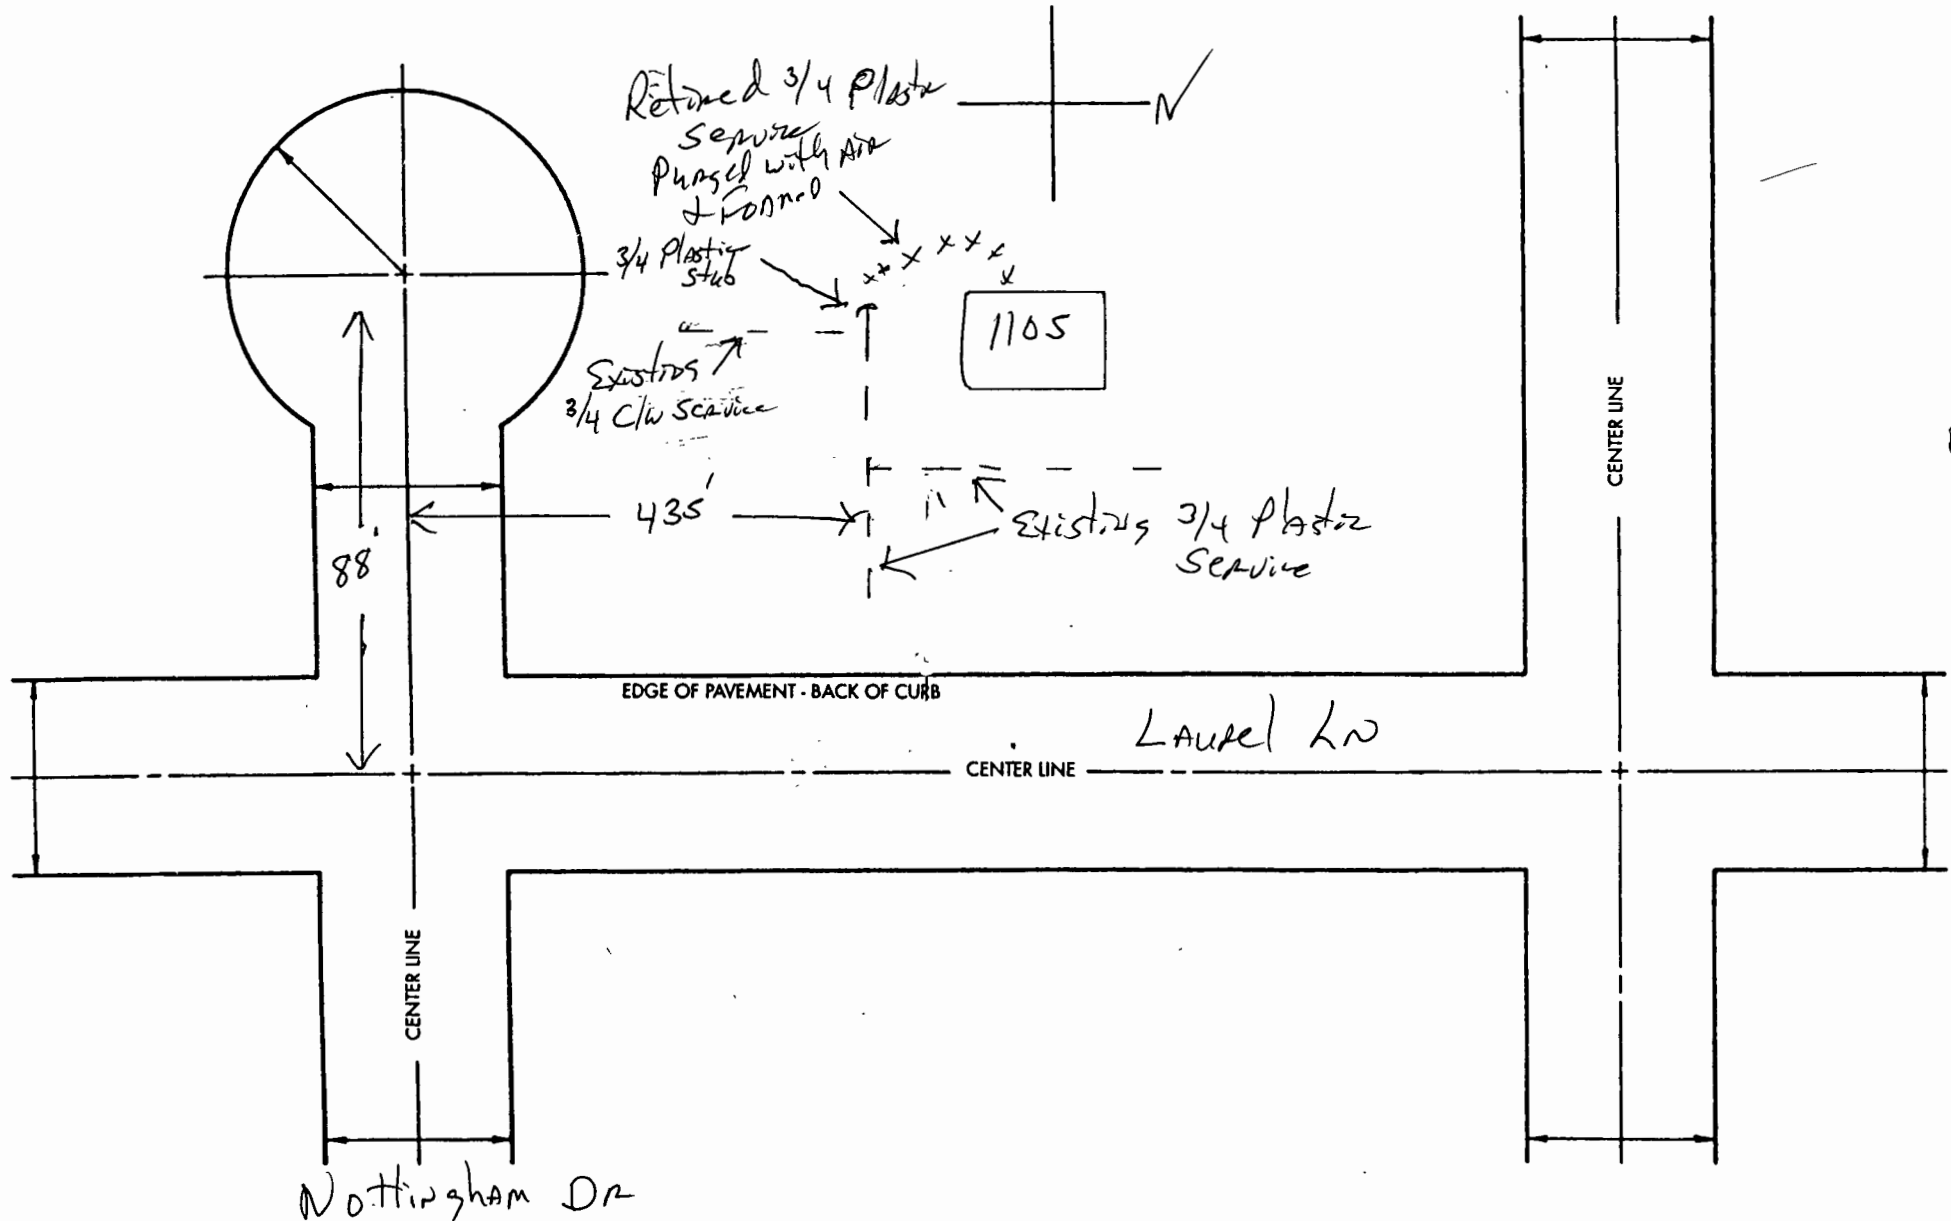 Retired 3/4 Plastic
Service
Purged with Air
& Foamed
N
3/4 Plastic
Stub
1105
Existing
3/4 C/W Service
435'
88'
Existing 3/4 Plastic
Service
CENTER LINE
EDGE OF PAVEMENT - BACK OF CURB
Laurel LN
CENTER LINE
CENTER LINE
Nottingham DR